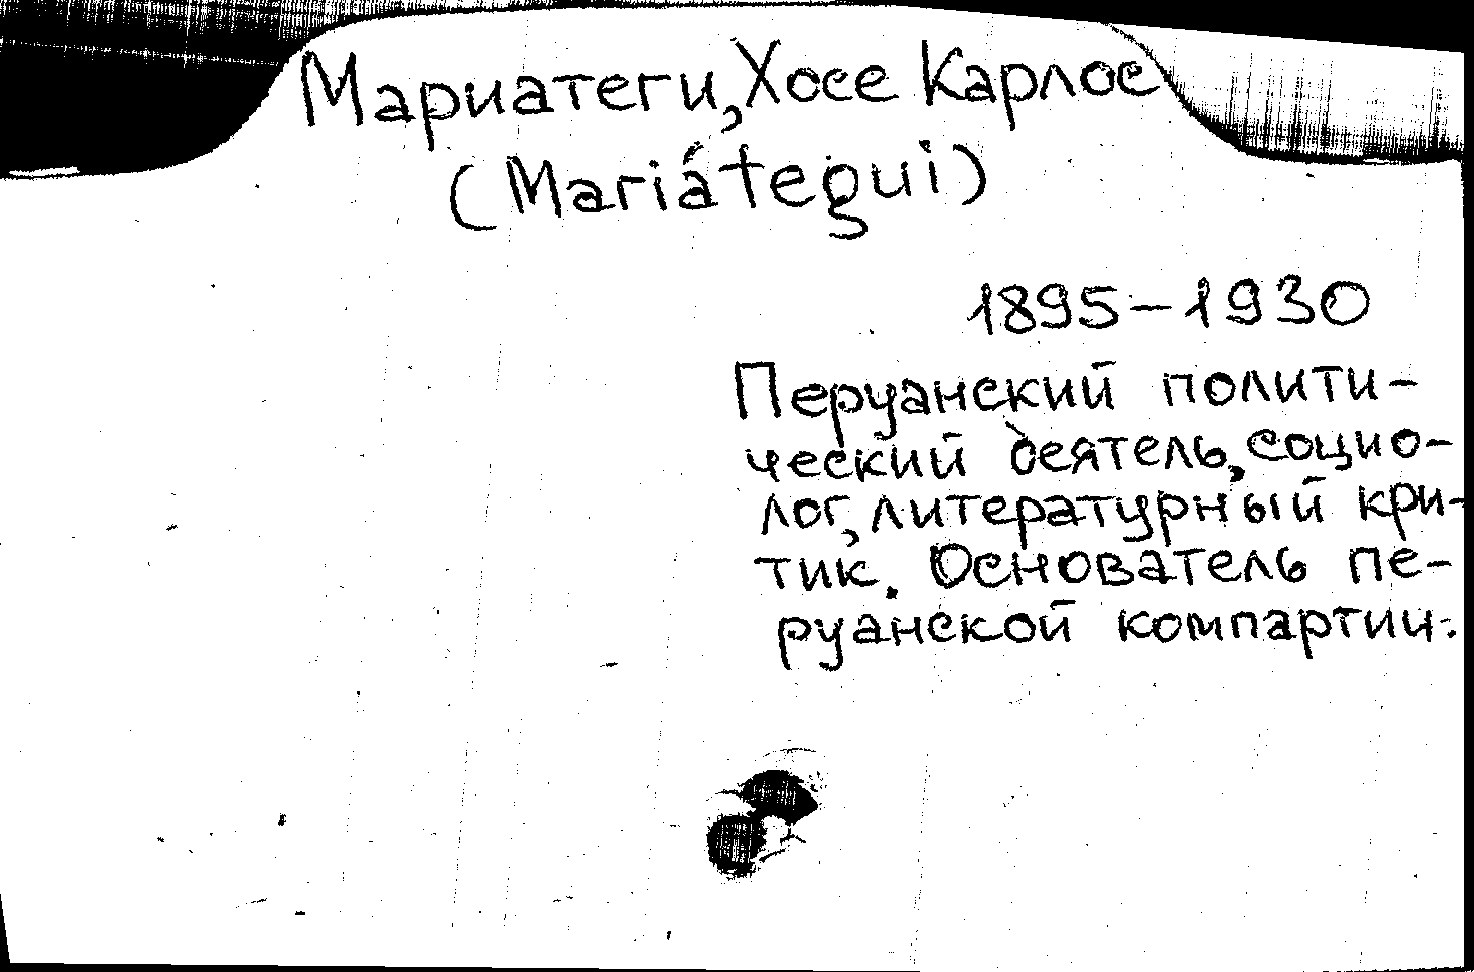 Мариатеги, Хосе Карлос
(Mariátegui)
1895–1930
Перуанский полити-
ческий деятель, социо-
лог, литературный кри-
тик. Основатель пе-
руанской компартии.